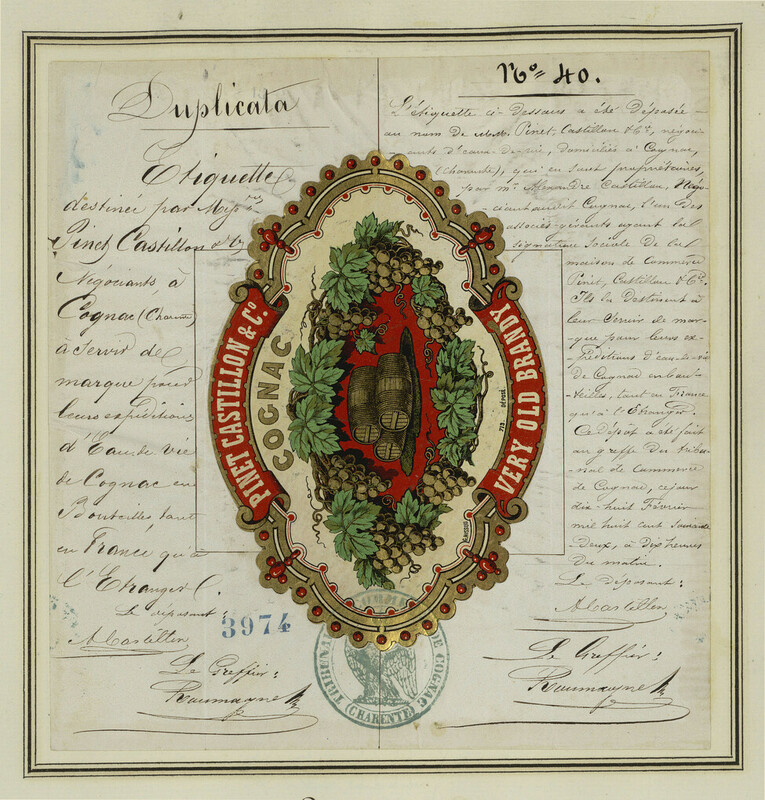 Duplicata
Etiquette
destinée par Mess.rs
Pinet Castillon & Cie
Négociants à
Cognac (Charente)
à Servir de
marque pour
leurs expéditions
d'Eau de Vie
de Cognac en
Bouteilles, tant
en France qu'à
l'Etranger.
Le déposant:
ACastillon
Le Greffier:
3974
No= 40.
L'étiquette ci-dessous a été déposée
au nom de M.M. Pinet, Castillon & Cie, négoci-
-ants d'eaux-de-vie, domiciliés à Cognac,
(Charente), qui en sont propriétaires,
par Mr Alexandre Castillon, Négo-
-ciant audit Cognac, l'un des
associés-gérants ayant la
signature Sociale de la
maison de Commerce
Pinet, Castillon & Cie.
Ils la destinent à
leur Servir de mar-
-que pour leurs ex-
-péditions d'eau-de-vie
de Cognac en bou-
-teilles, tant en France
qu'à l'Etranger.
Ce dépôt a été fait
au greffe du tribu-
-nal de Commerce
de Cognac, ce jour
dix-huit Février
mil huit cent soixante
-deux, à dix heures
du matin.
Le déposant:
ACastillon
Le Greffier:
PINET CASTILLON & Co
COGNAC
VERY OLD BRANDY
773. DÉPOSÉ.
TRIBUNAL DE COMMERCE DE COGNAC
(CHARENTE)